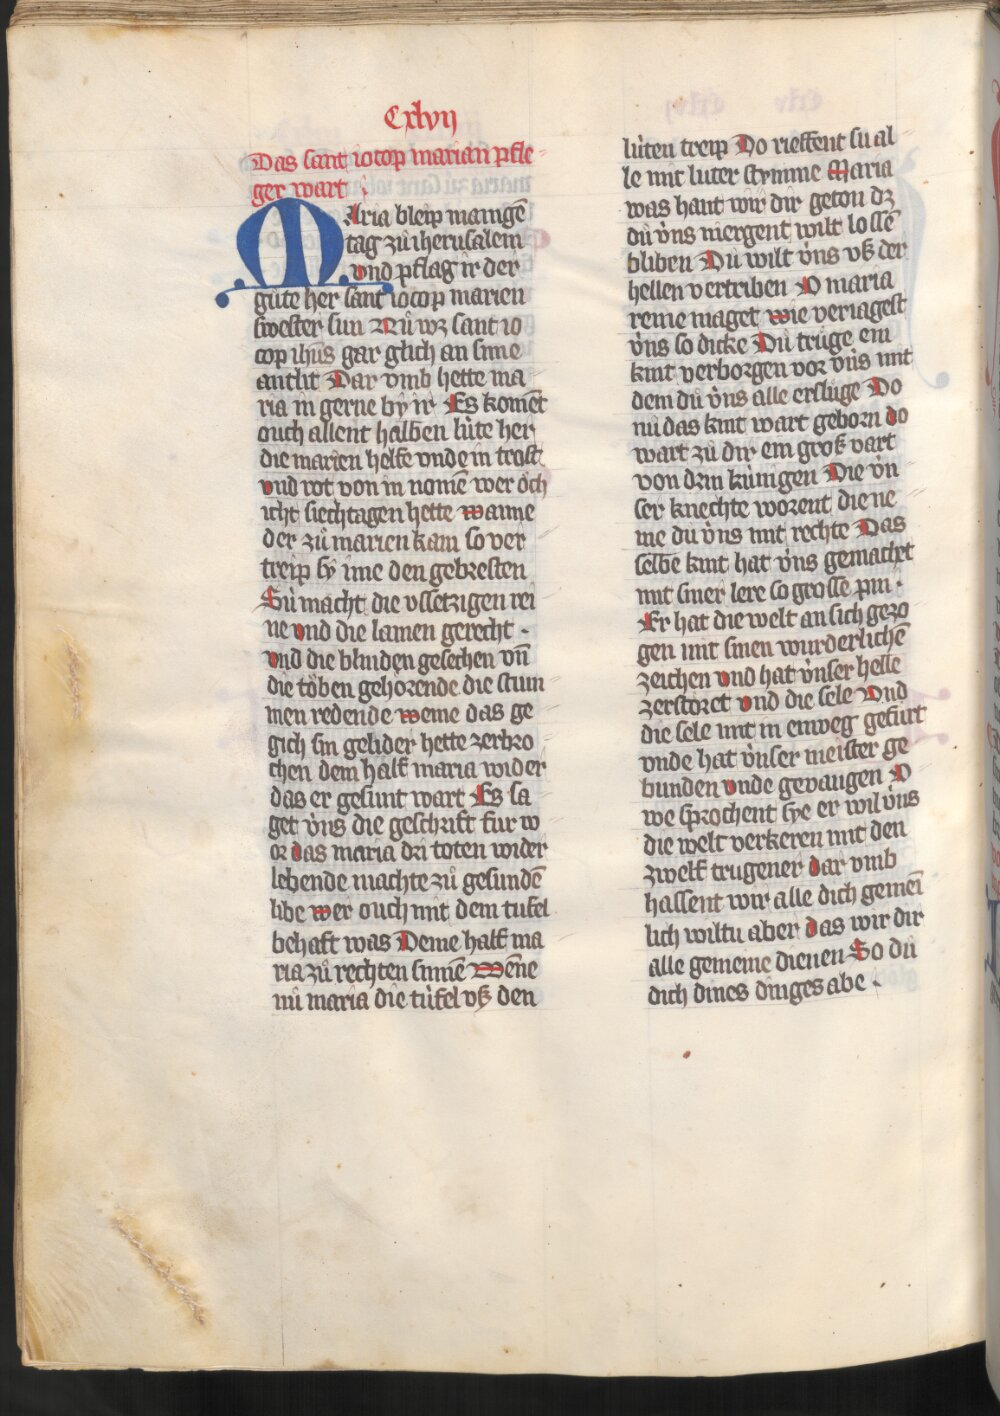 Cxlvij
Das sant iocop marian pfle-
ger wart
Maria bleip manigē
tag zů iherusalem
vnd pflag ir der
gůte her sant iocop marien
swester sun Nů wz sant io
cop ihūs gar glich an sine
antlit Dar vmb hette ma
ria in gerne bÿ ir Es komēt
ouch allent halben lùte her
die marien helfe vnde in trost
vnd rot von in nomē wer öch
icht siechtagen hette wanne
der zů marien kam so ver
treip sÿ ime den gebresten
Sù macht die vssetzigen rei
ne vnd die lamen gerecht .
vnd die blinden gesechen vn̄
die töben gehörende die stum
men redende weme das ge
gich sin gelider hette zerbro
chen dem half maria wider
das er gesunt wart Es sa
get v̇ns die geschrift fur w
or das maria dri toten wider
lebende machte zů gesundē
libe wer ouch mit dem tufel
behaft was Deme half ma
ria zů rechten sinnē Wēne
nù maria die tùfel vß den
lùten treip Do rieffent su al
le mit luter stymme Maria
was hant wir dir geton dz
dù v̇ns niergent wilt lossē
bliben Du wilt v̇ns vß der
hellen vertriben O maria
reine maget wie veriagest
v̇ns so dicke Du trùge ein
kint verborgen vor v̇ns mit
dem dù v̇ns alle erslùge Do
nù das kint wart geborn do
wart zů dir ein groß vart
von drin kùnigen Die v̇n
ser knechteworent die ne
me du v̇ns mit rechte Das
selbe kint hat v̇ns gemacht
mit siner lere so grosse pin .
Er hat die welt an sich gezo
gen mit sinen wunderlichē
zeichen vnd hat v̇nser helle
zerstoret vnd die sele Vnd
die sele mit in enweg gefurt
vnde hat v̇nser meister ge
bunden vnde gevangen O
we sprochent sye er wil v̇ns
die welt verkeren mit den
zwelf trugener dar vmb
hassent wir alle dich gemeī
lich wiltu aber das wir dir
alle gemeine dienen So dù
dich dines dinges abe .